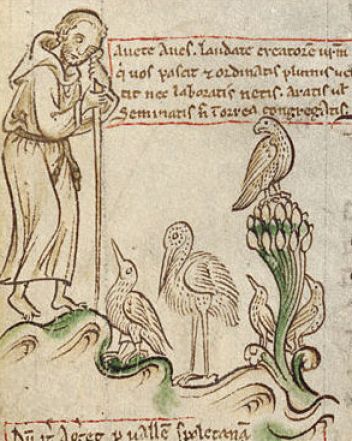 Auete Aues. laudate creatorē urm̄
q̇ uos pascit ⁊ ordinatis plumis ue
tit nec laboratis netis. Aratis ul
Seminatis n̄ i orrea congregatis.
Dū it' Ageret p uallē spoletanā